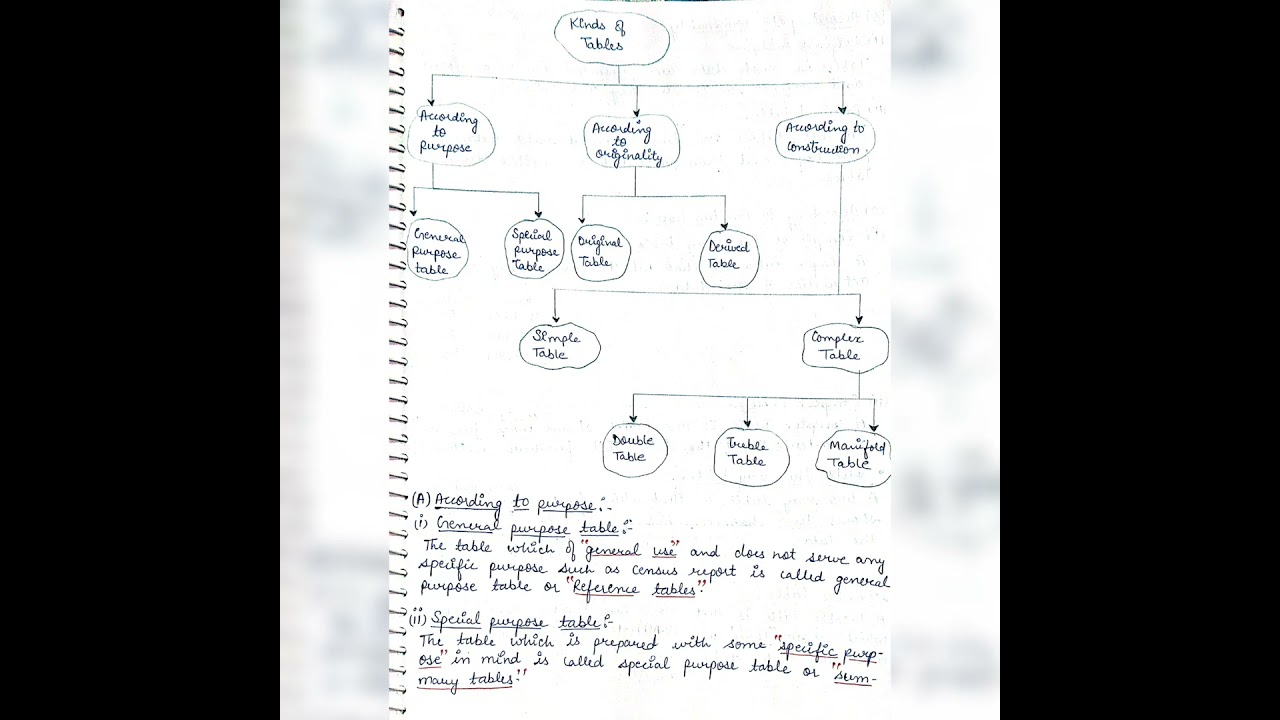 Kinds of
Tables
According
to
purpose
According
to
originality
According to
construction
General
purpose
table
Special
purpose
Table
Original
Table
Derived
Table
Simple
Table
Complex
Table
Double
Table
Treble
Table
Manifold
Table
(A) According to purpose:-
(i) General purpose table:-
The table which of "general use" and does not serve any
specific purpose such as census report is called general
purpose table or "Reference tables".
(ii) Special purpose table:-
The table which is prepared with some "specific purp-
ose" in mind is called special purpose table or "sum-
mary tables."